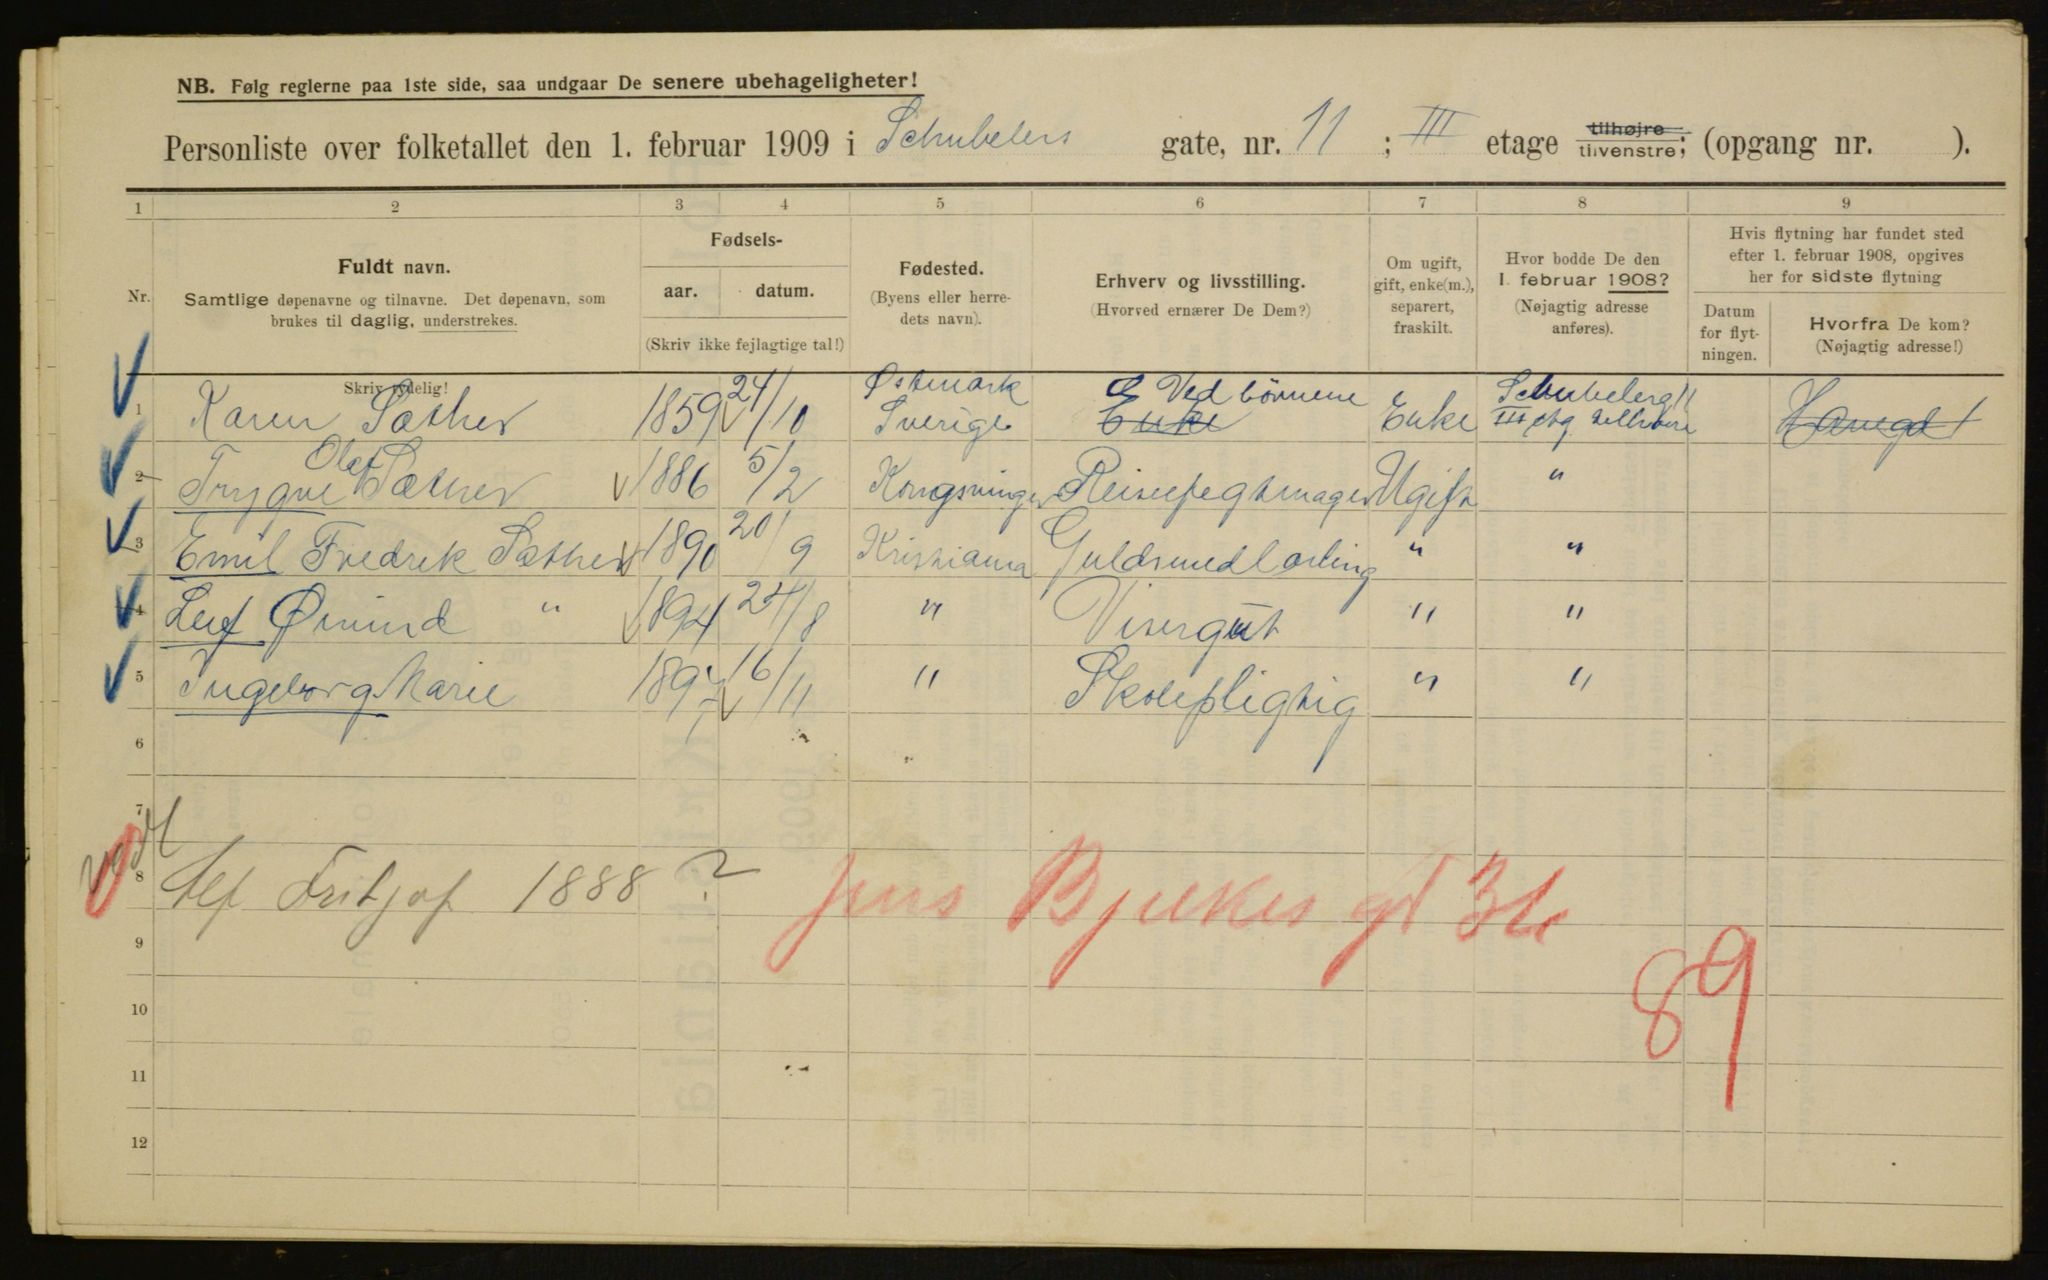 NB. Følg reglerne paa 1ste side, saa undgaar De senere ubehageligheter!
Personliste over folketallet den 1. februar 1909 i Schubelers gate, nr. 11 ; III etage tilhøjre tilvenstre; (opgang nr. ).
1 2 3 4 5 6 7 8 9
Nr.
Fuldt navn.
Samtlige døpenavne og tilnavne. Det døpenavn, som
brukes til daglig, understrekes.
Skriv tydelig!
Fødsels-
aar. datum.
(Skriv ikke fejlagtige tal!)
Fødested.
(Byens eller herre-
dets navn).
Erhverv og livsstilling.
(Hvorved ernærer De Dem?)
Om ugift,
gift, enke(m.),
separert,
fraskilt.
Hvor bodde De den
1. februar 1908?
(Nøjagtig adresse
anføres).
Hvis flytning har fundet sted
efter 1. februar 1908, opgives
her for sidste flytning
Datum
for flyt-
ningen.
Hvorfra De kom?
(Nøjagtig adresse!)
Østmark Ved børnene Schubelerg 11
1 Karen Sæther 1859 24/10 Sverige Enke Enke III etg
Olaf
2 Trygve Sæther 1886 5/2 Kongsvinger Ugift "
3 Emil Fredrik Sæther 1890 20/9 Kristiania Guldsmedlærling " "
4 Leif Øivind " 1894 24/8 " Visergut " "
5 Ingeborg Marie 1897 16/11 " Skolepligtig " "
6
7
8 Alf Fritjof 1888 ? Jens Bjelkes gt
9
89
10
11
12